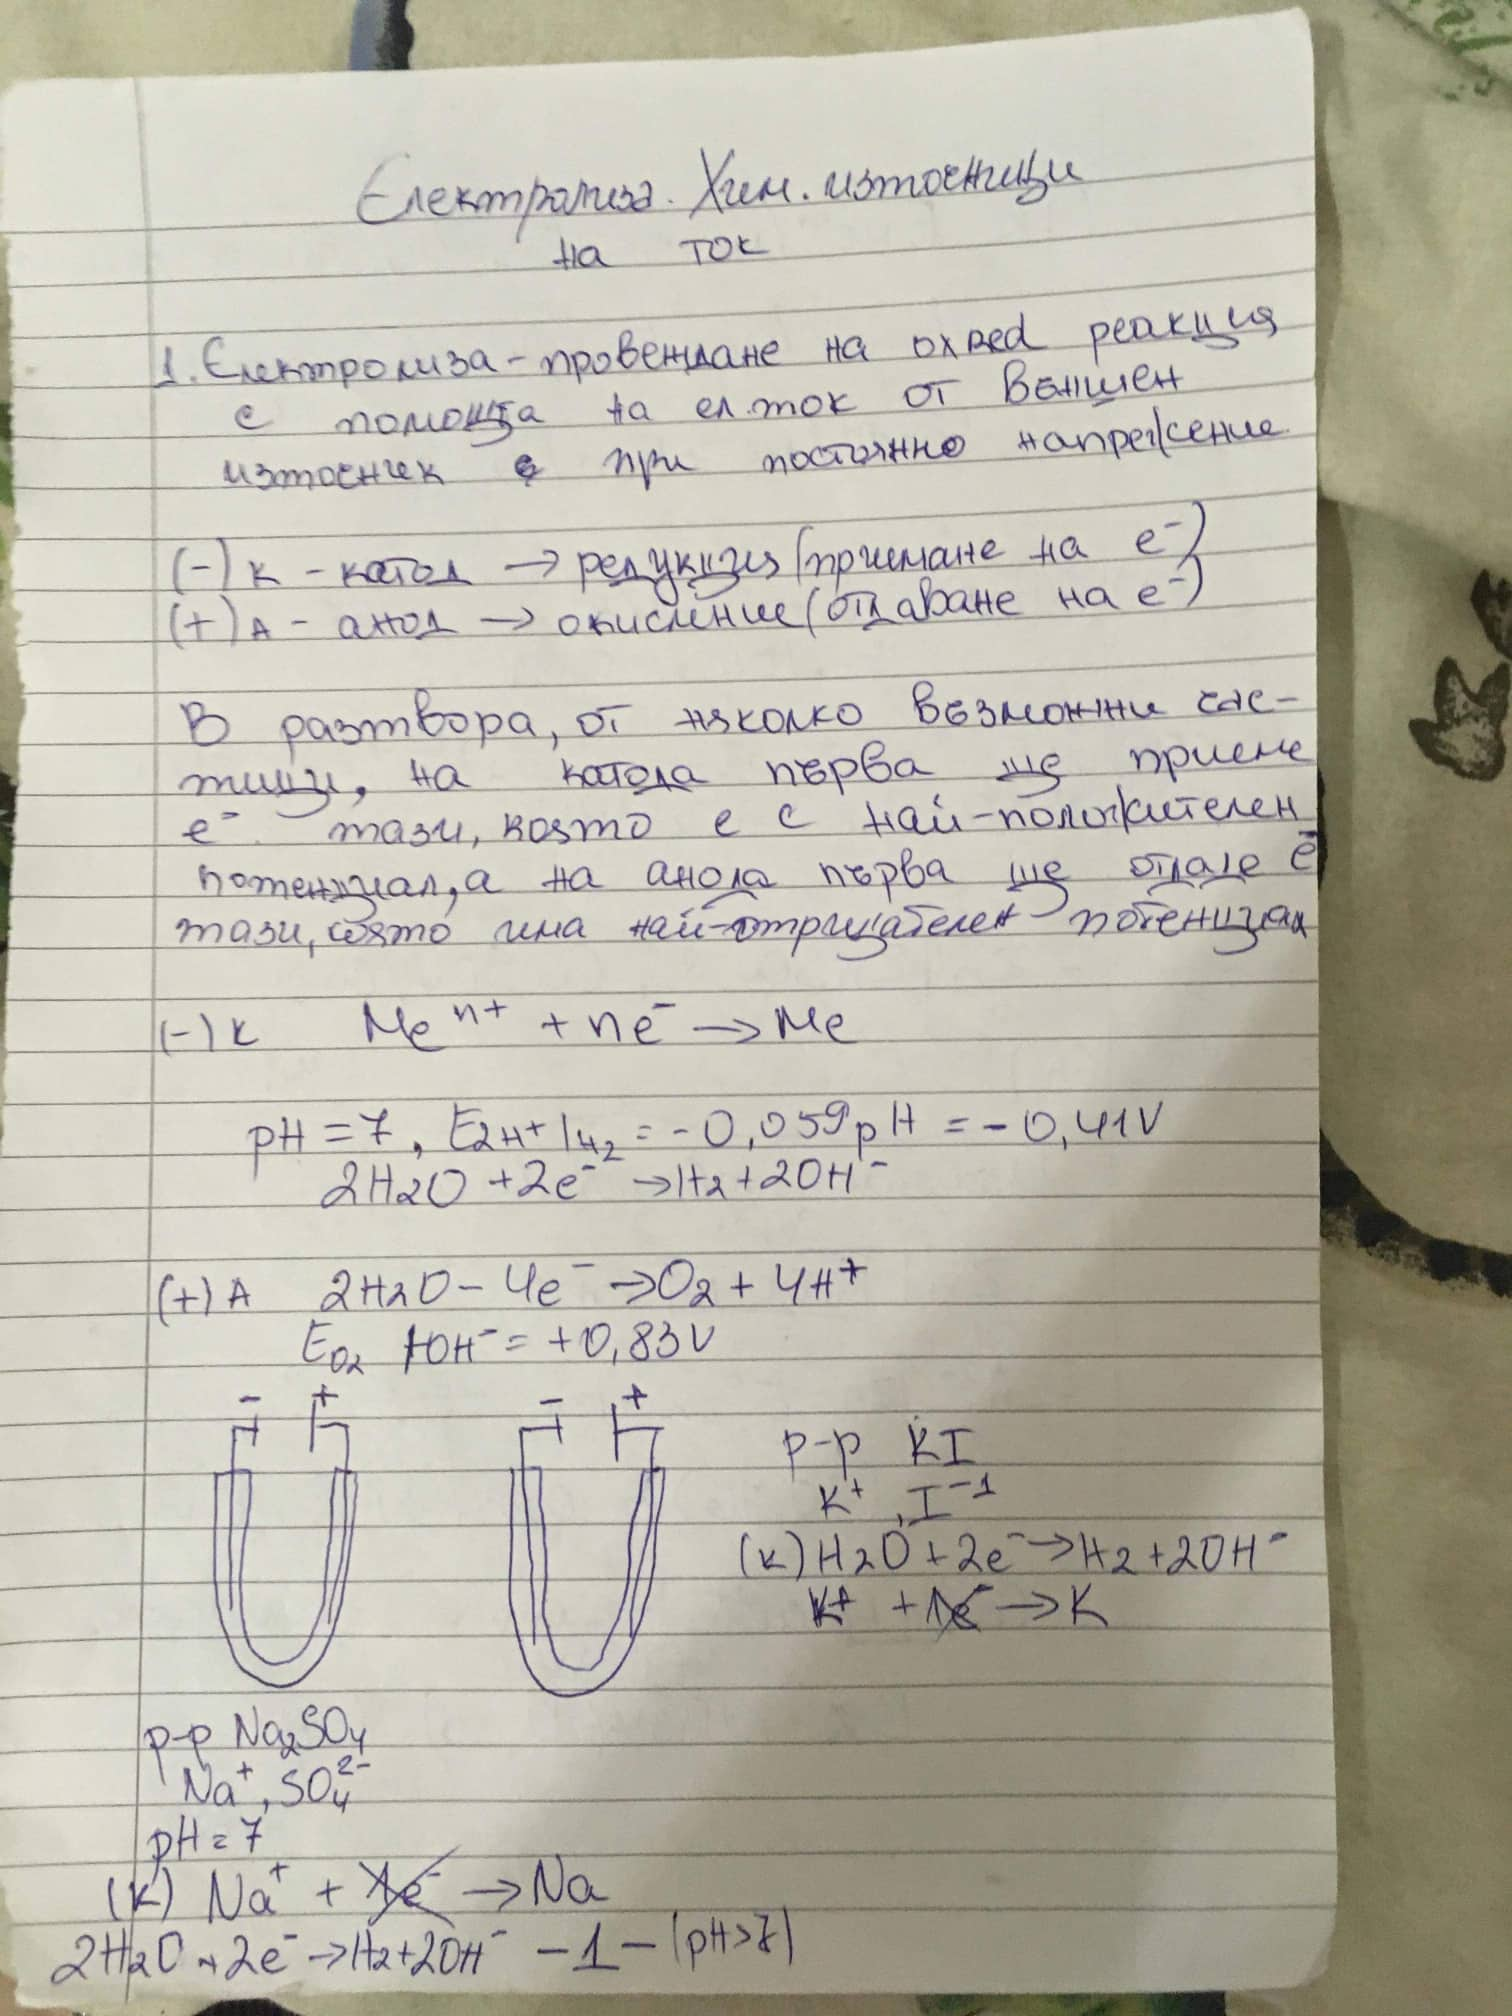 Електролиза. Хим. източници
на ток
1. Електролиза - провеждане на oxRed реакция
с помощта на ел. ток от външен
източник при постоянно напрежение
(-) К - катод → редукция (приемане на e⁻)
(+) А - анод → окисление (отдаване на e⁻)
В разтвора, от няколко възможни час-
тици, на катода първа ще приеме
e⁻ тази, която е с най-положителен
потенциал, а на анода първа ще отдаде e⁻
тази, която има най-отрицателен потенциал
(-) К Meⁿ⁺ + ne⁻ → Me
pH = 7, E2H⁺/H₂ = -0,059pH = -0,41V
2H₂O + 2e⁻ → H₂ + 2OH⁻
(+) А 2H₂O - 4e⁻ → O₂ + 4H⁺
EO₂ / OH⁻ = +0,83V
- + - +
р-р KI
K⁺, I⁻¹
(К) H₂O + 2e⁻ → H₂ + 2OH⁻
K⁺ + 1e⁻ → K
р-р Na₂SO₄
Na⁺, SO₄²⁻
pH = 7
(К) Na⁺ + 1e⁻ → Na
2H₂O + 2e⁻ → H₂ + 2OH⁻ - 1 - (pH > 7)